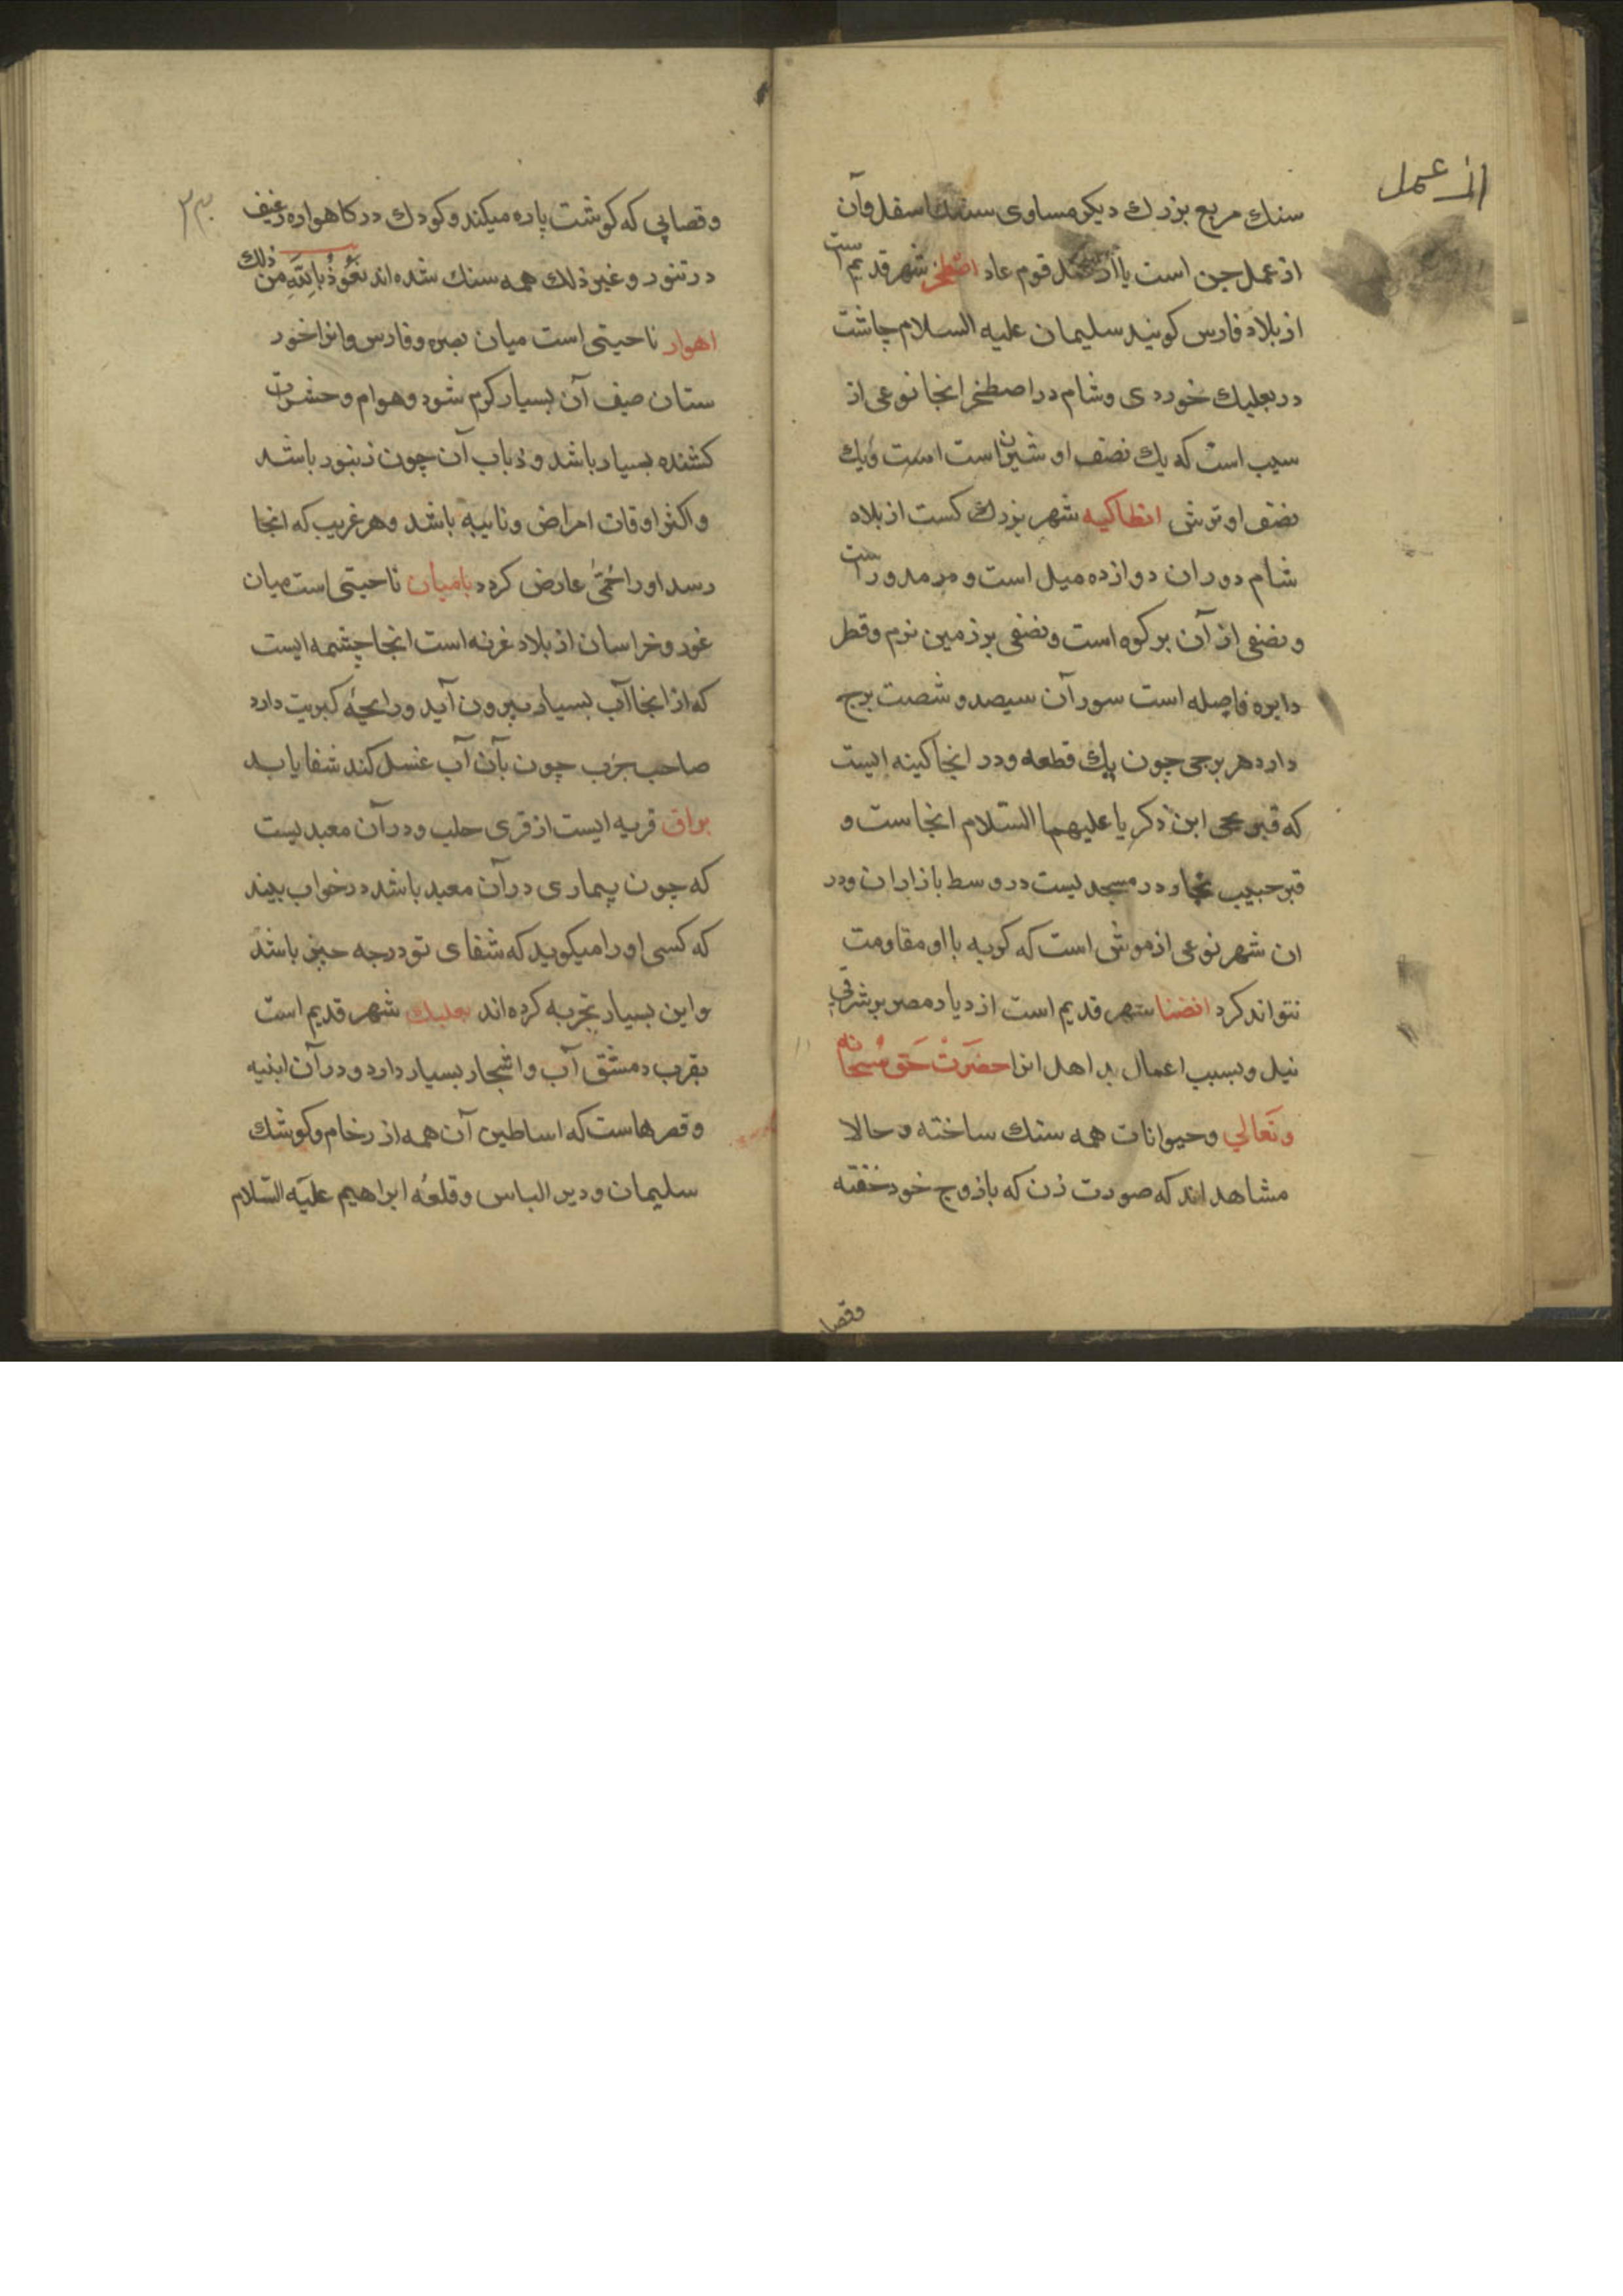 از عمل
سنك مربع بزرك ديكر مساوى سنك اسفل وآن
از عمل جن است يا از عمل قوم عاد اصطخر شهر قديم است
از بلاد فارس كويند سليمان عليه السلام چاشت
در بعلبك خوردى وشام در اصطخر انجا نوعى از
سيب است كه يك نصف او شيرين است است ويك
نصف او ترش انطاكيه شهر بزرك كست از بلاه
شام دوران دوازده ميل است و مدورست
و نصفى از آن بر كوه است ونصفى بر زمين نرم وقطر
دايره فاصله است سور آن سيصد و شصت برج
دارد هر برجى چون يك قطعه ودر انجا كينه ايست
كه قبر يحيى ابن ذكريا عليهما السّلام انجاست و
قبر حبيب نجار در مسجد ليست در وسط بازاران ودر
ان شهر نوعى از موش است كه كربه با او مقاومت
نتواند كرد انصنا شهر قديم است از ديار مصر بر شرقي
نيل وبسبب اعمال بد اهل انرا حضَرَتْ حَق سُبحانه
وتَعَالي وحيوانات همه سنك ساخته وحالا
مشاهد اند كه صورت زن كه با زوج خود خفته
وقصا
٢٣
وقصابي كه كوشت پاره ميكند وكودك در كاهواره رغيف
در تنور وغير ذلك همه سنك شده اند نَعُوذُ بِاللّٰهِ مِن ذلك
اهوار ناحيتى است ميان بصره وفارس وانرا خور
ستان صيف آن بسيار كرم شود وهوام وحشرات
كشنده بسيار باشد وذباب آن چون زنبور باشد
واكثر اوقات امراض ونابيه باشد وهر غريب كه انجا
رسد او را حُمّىٰ عارض كردد باميان ناحيتى است ميان
غور وخراسان از بلاد غزنه است انجا چشمه ايست
كه از انجا آب بسيار بيرون آيد ورايحۀ كبريت دارد
صاحب جرب چون بآن آب غسل كند شفا يابد
براق قريه ايست از قرى حلب ودر آن معبد ليست
كه چون بيمارى در آن معبد باشد در خواب بيند
كه كسى او را ميكويد كه شفاى تو در چه چيز باشد
واين بسيار تجربه كرده اند بعلبك شهر قديم است
بقرب دمشق آب واشجار بسيار دارد ودر آن ابنيه
وقصرهاست كه اساطين آن همه از رخام وكوشك
سليمان ودير الباس وقلعه ابراهيم عليه السّلام